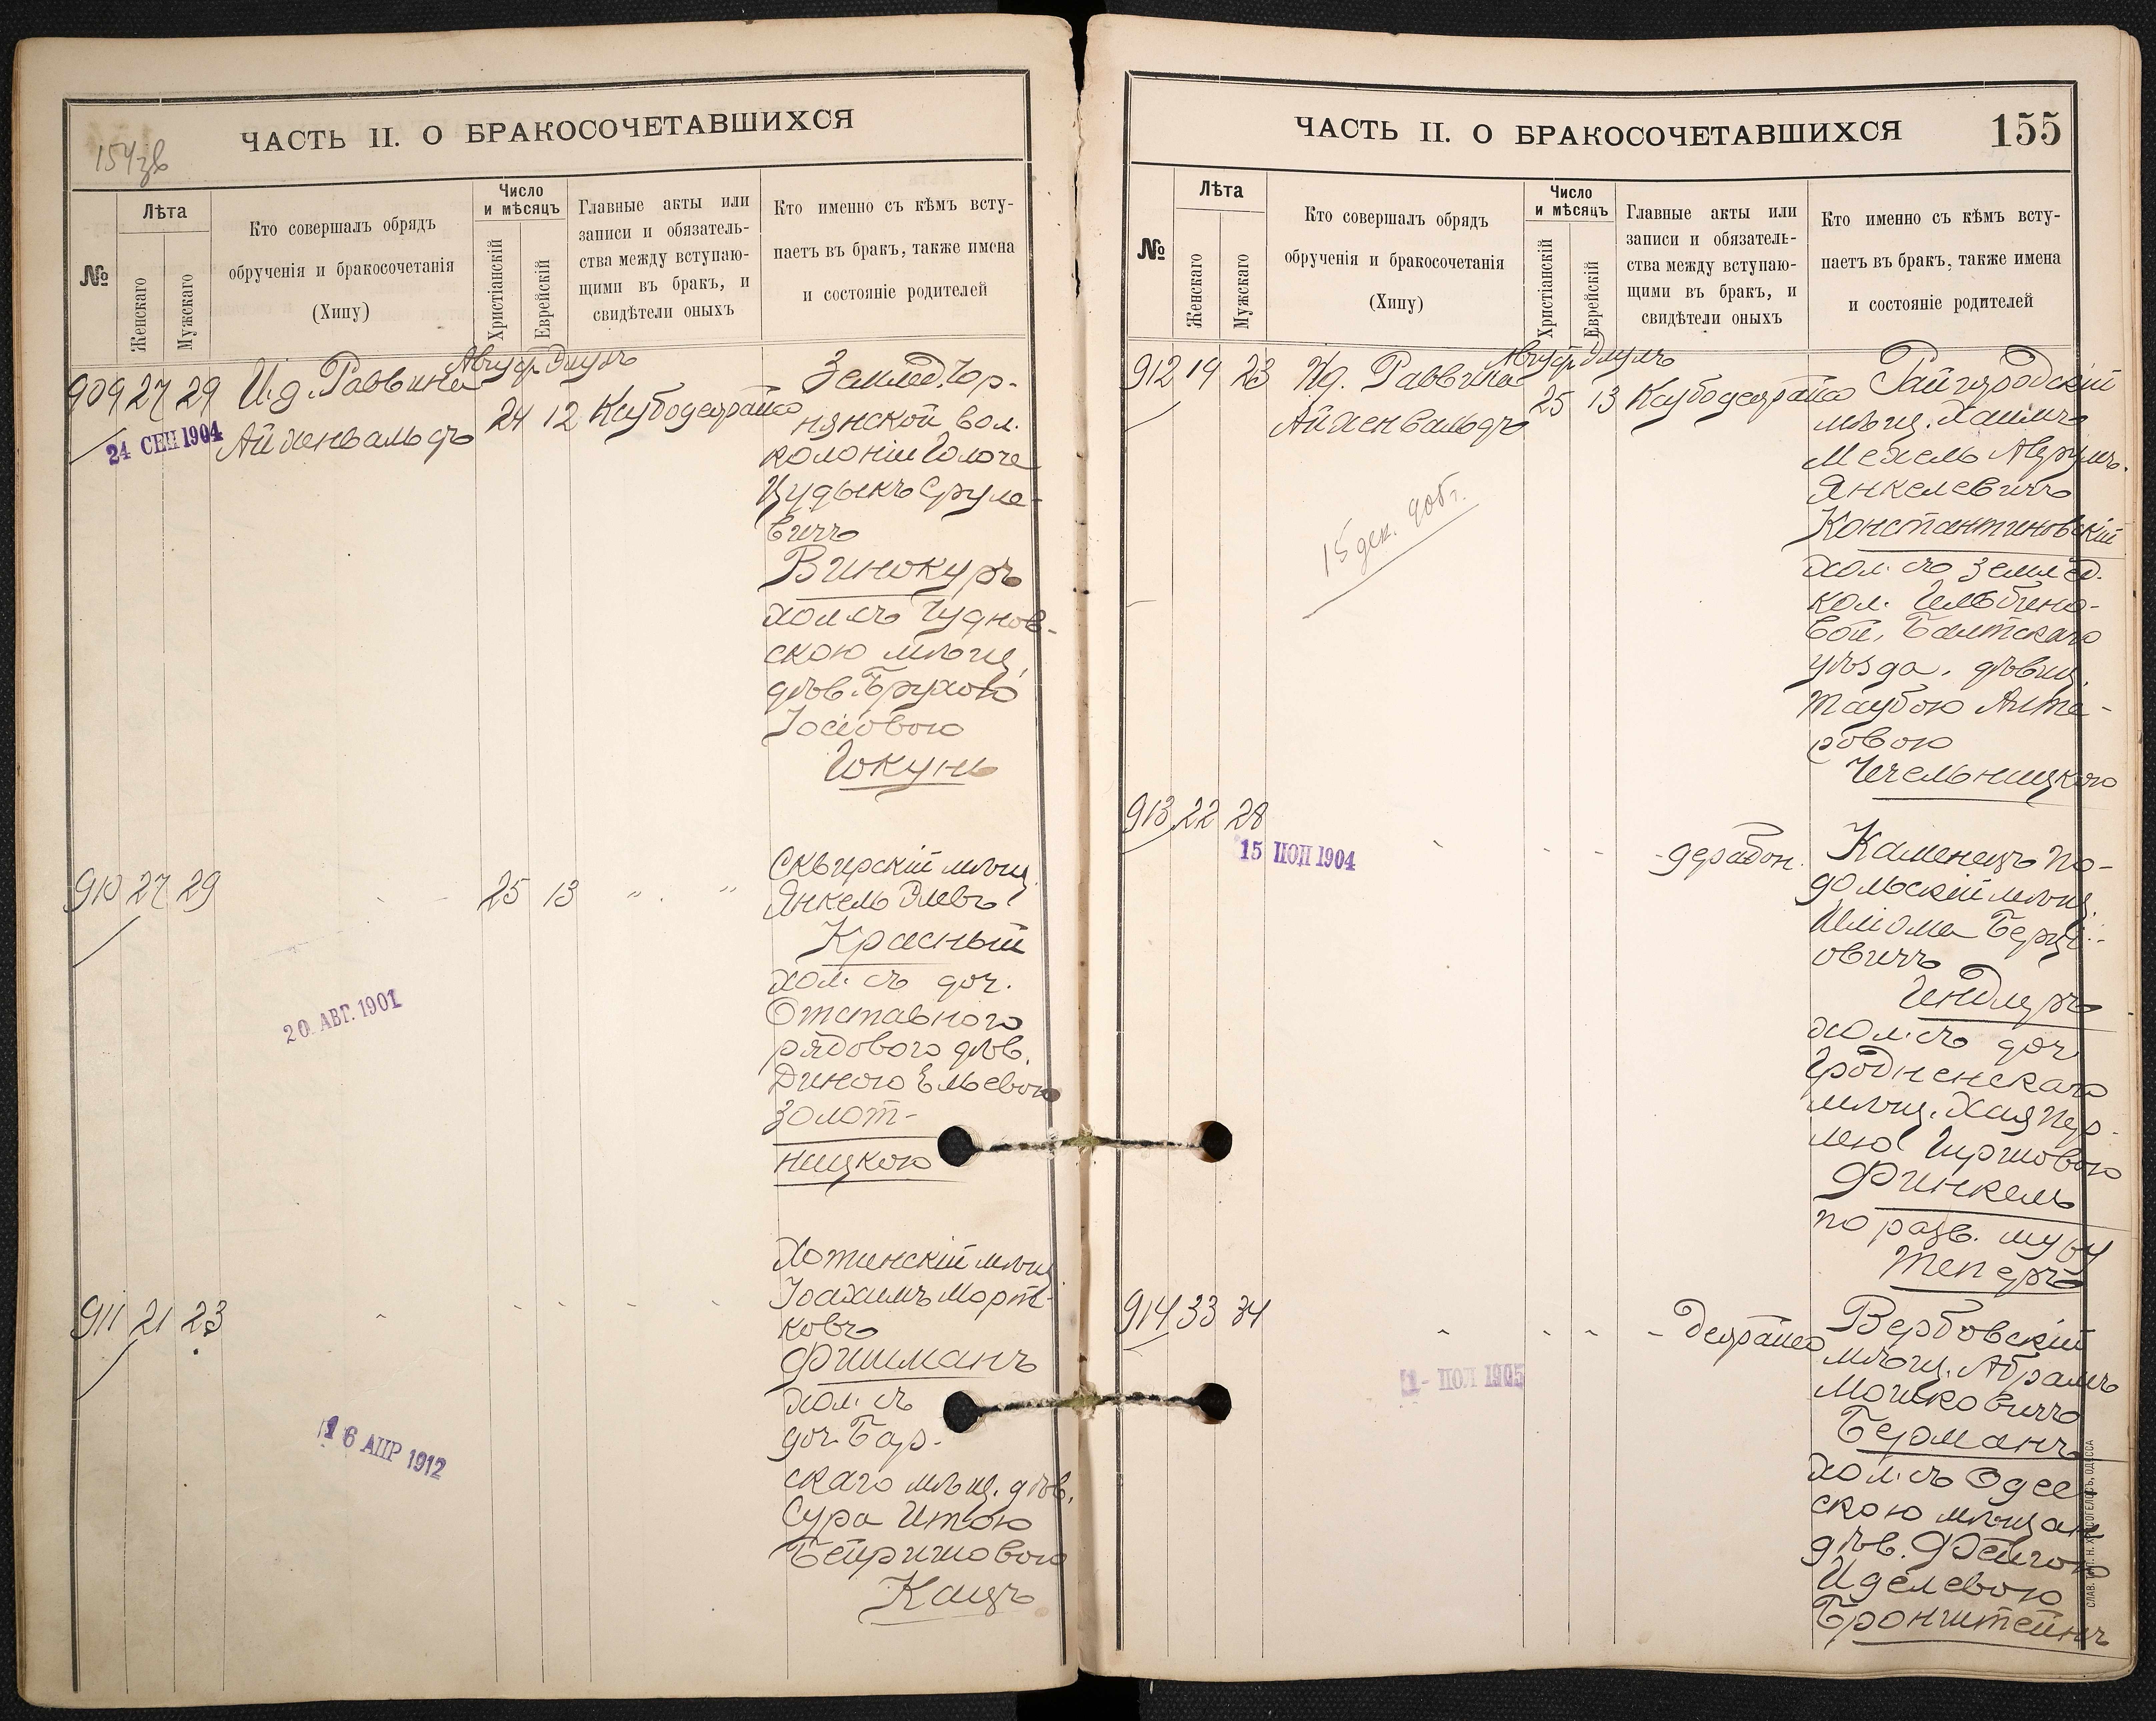 ЧАСТЬ II. О БРАКОСОЧЕТАВШИХСЯ
154зв
№
Лѣта
Женскаго
Мужскаго
Кто совершалъ обрядъ
обрученія и бракосочетанія
(Хипу)
Число
и мѣсяцъ
Христіанскій
Еврейскій
Главные акты или
записи и обязатель-
ства между вступаю-
щими въ бракъ, и
свидѣтели оныхъ
Кто именно съ кѣмъ всту-
паетъ въ бракъ, также имена
и состояніе родителей
909 27 29 И.д. Раввина Август Элулъ
Айхенвальдъ 24 12
24 СЕН 1904
Землед.
нянской вол.
колоніи
Срул-
вичъ
Винокуръ
хол. съ Чуднов-
скою мѣщ.
дѣв. Брухою
Іосіовою
Гокунь
910 27 29 25 13 " "
20. АВГ. 1901
Сквирскій мѣщ.
Янкель Элевъ
Красный
хол. съ доч.
Отставного
рядового дѣв.
Диною Ельевою
Золот-
ницкою
911 21 23
16 АПР 1912
Хотинскій мѣщ.
Іоахимъ Морт-
ковъ
Фишманъ
хол. съ
доч. Бар-
скаго мѣщ. дѣв.
Сура Итою
Бейришовою
Кацъ
ЧАСТЬ II. О БРАКОСОЧЕТАВШИХСЯ
155
№
Лѣта
Женскаго
Мужскаго
Кто совершалъ обрядъ
обрученія и бракосочетанія
(Хипу)
Число
и мѣсяцъ
Христіанскій
Еврейскій
Главные акты или
записи и обязатель-
ства между вступаю-
щими въ бракъ, и
свидѣтели оныхъ
Кто именно съ кѣмъ всту-
паетъ въ бракъ, также имена
и состояніе родителей
912 19 23 Ид. Раввина Август Элулъ
Айхенвальдъ 25 13
15 дек. 905 г.
Райгродскій
мѣщ. Хаимъ
Мехель Аврумъ-
Янкелевичъ
Константиновскій
хол. съ землед.
кол.
вой, Балтскаго
уѣзда, дѣвиц.
Таубою Альте-
ровою
Чечельницкою
913 22 28
15 НОЯ 1904
Каменецъ По-
дольскій мѣщ.
Шліома Берц-
овичъ
Гендлеръ
хол. съ доч
Гродненскаго
мѣщ. Хая Пер-
лею Гиршовою
Финкель
по разв. мужу
Теперъ
914 33 34
1 - НОЯ 1905
Вербовскій
мѣщ. Абрамъ
Мошковичъ
Берманъ
хол. съ Одес-
скою мѣщан
дѣв. Фейгою
Иделевою
Бронштейнъ